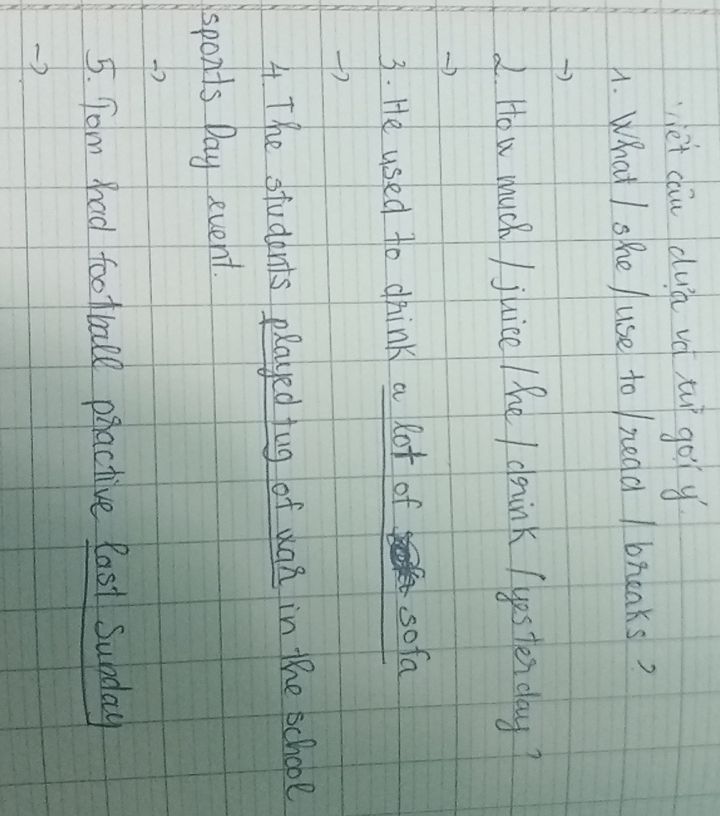 viết câu dựa và từ gợi ý
1. What / she / use to / read / breaks ?
→
2. How much / juice / he / drink / yesterday ?
→
3. He used to drink a lot of sofa
→
4. The students played tug of war in the school
sports Day event.
→
5. Tom had football practive last Sunday
→